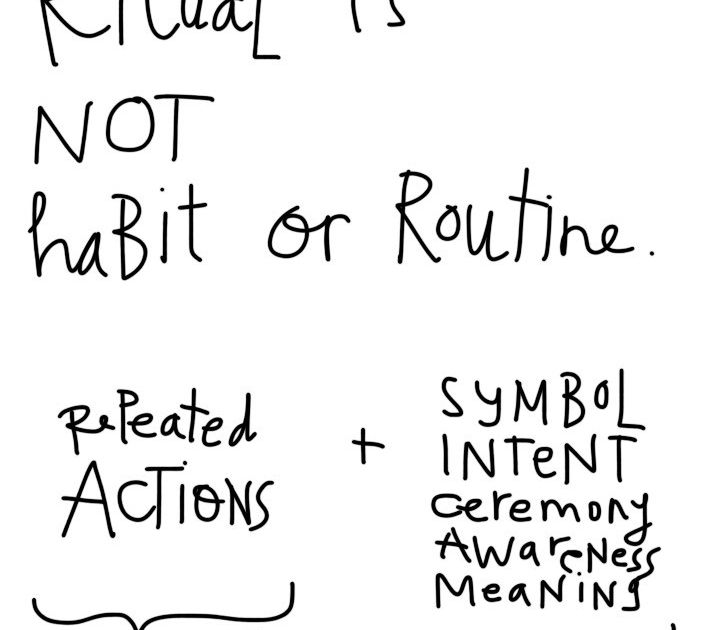 RITUAL is
NOT
haBit or Routine.
RePeated
ACTiONS
+
SYMBOL
INTeNT
ceremony
AWareNess
MeaNiNg